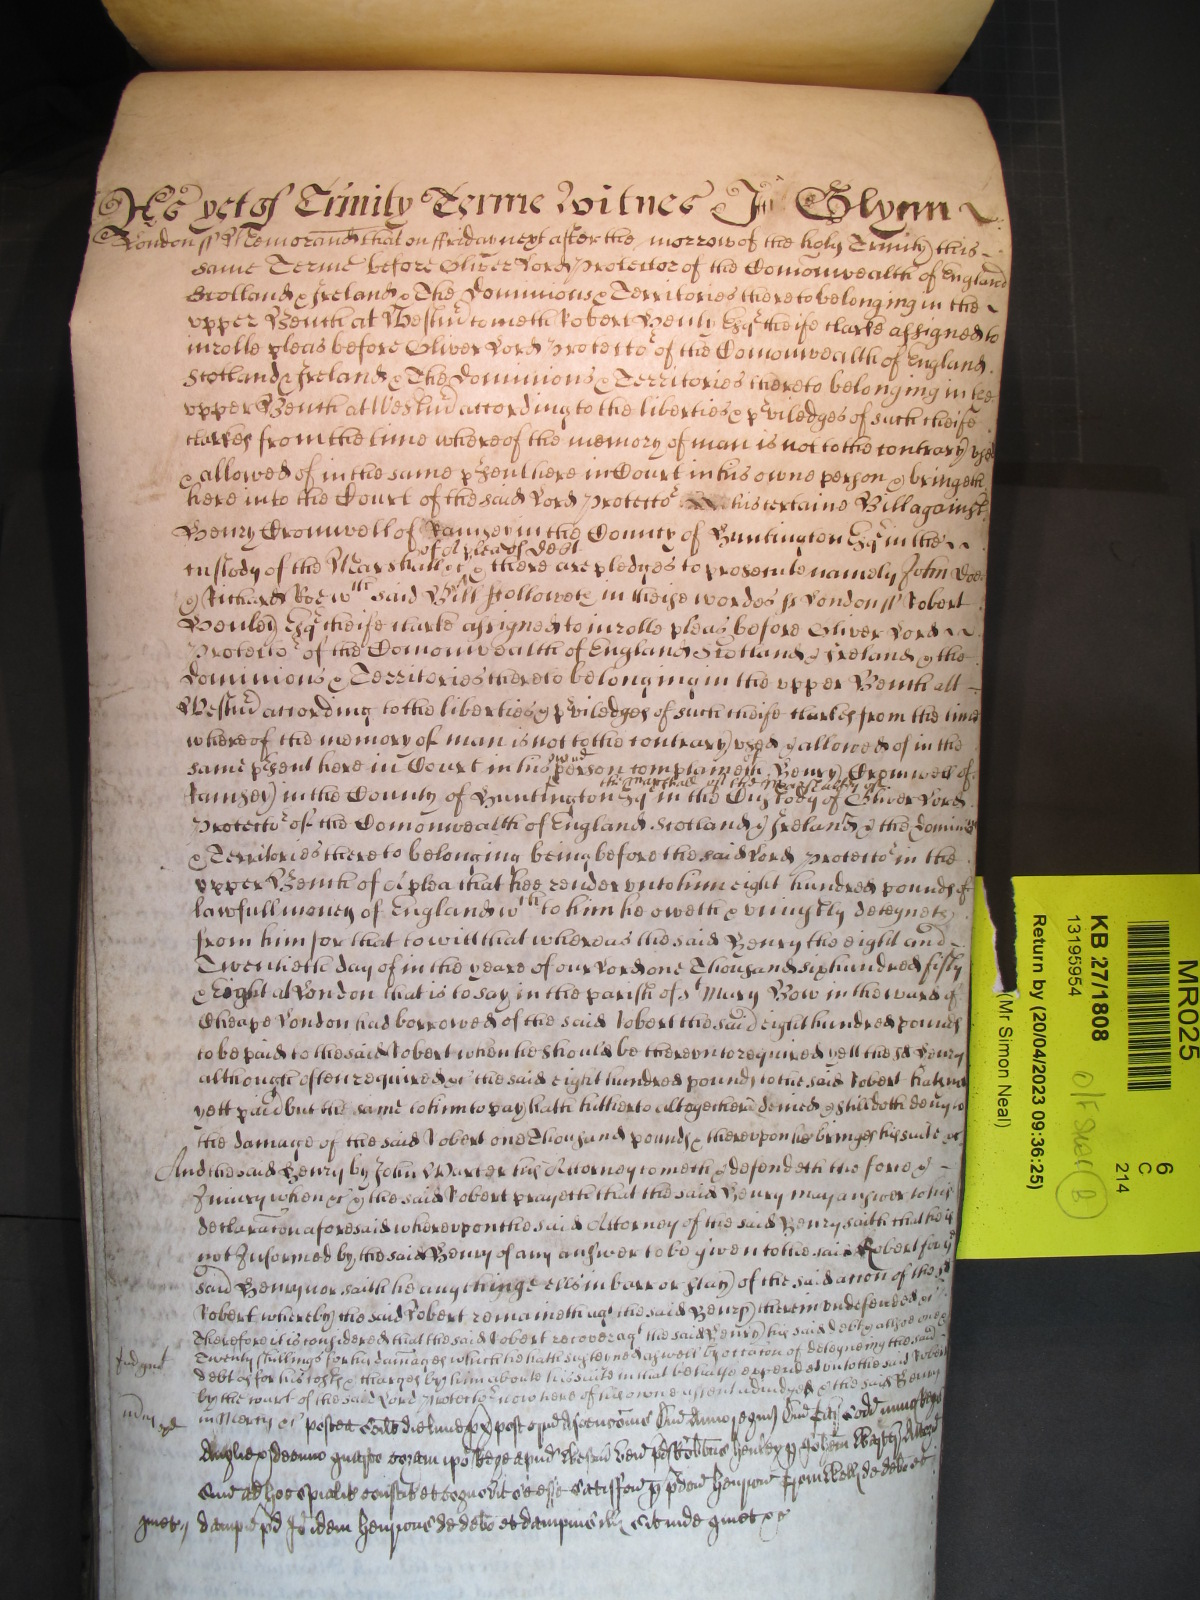 As yet of Trinity Terme Witnes Jn Glynn
London ss Memorand that on ffriday next after the morrow of the holy Trinity this
same Terme before Oliver Lord Protector of the Comonwealth of England
Scotland & Ireland & The Dominions & Territories thereto belonging in the
vpper Bench at Westmr cometh Robert Henly Esqr cheife clarke assigned to
inrolle pleas before Oliver Lord Protector of the Comonwealth of England
Scotland & Ireland & The Dominions & Territories thereto belonging in the
vpper Bench at Westmr according to the liberties & priviledges of such cheife
clarkes from the time whereof the memory of man is not to the contrary vsed
& allowed of in the same present here in Court in his owne person & bringeth
here into the Court of the said Lord Protector his certaine Bill against
Henry Cromwell of Ramsey in the County of Huntington Esqr in the
of A plea of debt
custody of the Marshall &c & there are pledges to prosecute namely John Doe
& Richard Roe wch said Bill ffolloweth in theise wordes ss London ss Robert
Henley Esqr cheife clarke assigned to inrolle pleas before Oliver Lord
Protector of the Comonwealth of England Scotland & Ireland & the
Dominions & Territories thereto belonging in the vpper Bench att
Westmr according to the liberties & priviledges of such cheife clarkes from the time
whereof the memory of man is not to the contrary vsed & allowed of in the
same present here in Court in his owne person complaineth of Henry Cromwell of
the Marshall of the Marshalsey of
Ramsey in the County of Huntington Esqr in the Custody of Oliver Lord
Protector of the Comonwealth of England Scotland & Ireland & the Dominions
& Territories thereto belonging being before the said Lord Protector in the
vpper Bench of A plea that hee render vnto him eight hundred pounds of
lawfull money of England wch to him he oweth & vniustly deteyneth
from him for that to witt that whereas the said Henry the eight and
Twentieth day of in the yeare of our Lord one Thousand six hundred fifty
& Eight at London that is to say in the parish of st Mary Bow in the ward of
Cheape London had borrowed of the said Robert the said eight hundred pounds
to be paid to the said Robert when he should be therevnto required yett the sd Henry
although often required &c the said eight hundred pounds to the said Robert hath not
yett paid but the same to him to pay hath hitherto altogether denied & still doth deny to
the damage of the said Robert one Thousand pounds & therevpon he bringes his suite &c
And the said Henry by John Waxter his Attorney cometh & defendeth the force &
Iniury when &c & the said Robert prayeth that the said Henry may answer to his
declaraton aforesaid wherevpon the said Attorney of the said Henry saith that he is
not Informed by the said Henry of any answer to be given to the said Robert for the
said Henry nor saith he any thinge ells in barr or stay of the said accon of the sd
Robert whereby the said Robert remaineth agt the said Henry therein vndefended &c
Therefore it is considered that the said Robert recover agt the said Henry his said debt & alsoe
Judgmt
Twenty shillings for his damages which he hath susteyned as well by occasion of deteyning the said
debt as for his costs & charges by him about his suite in that behalfe expended vnto the said Robert
by the court of the said Lord Protector now here of his owne assent adiudged & the said Henry
in Mercy &c
MR025
6
C
214
KB 27/1808
13195954
Return by (20/04/2023 09:36:25)
(Mr Simon Neal)